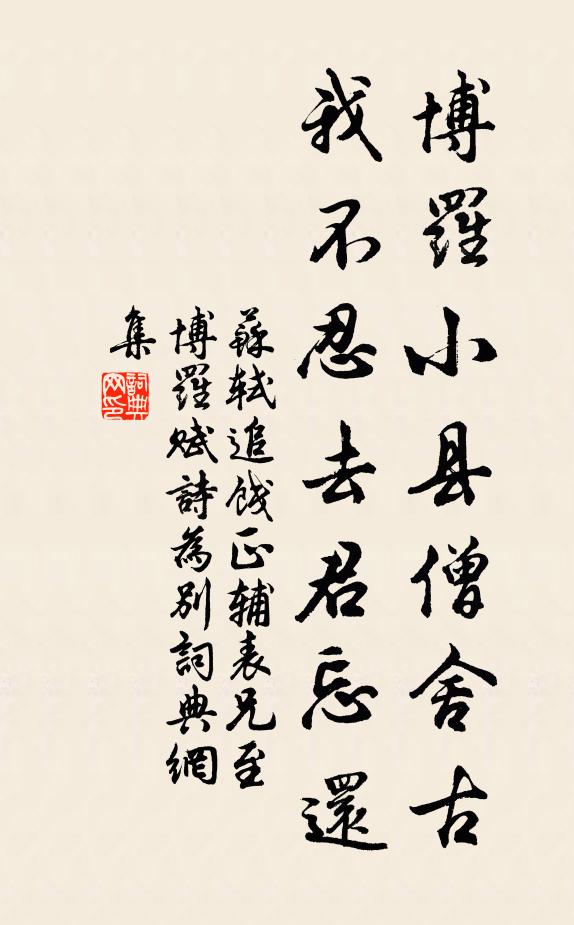 博羅小县僧舍古
我不忍去君忘還
蘇軾追餞正輔表兄至
博羅賦詩為别詞典網
集
詞典
网印